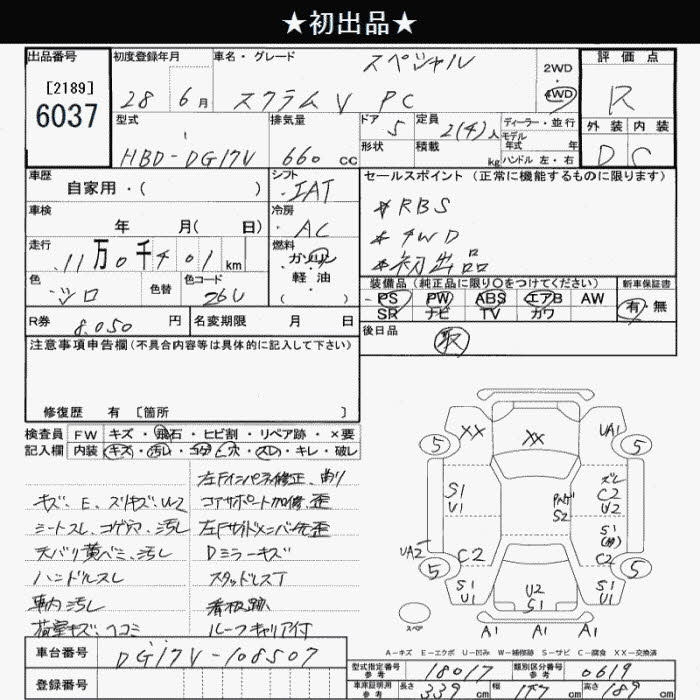 ★初出品★
出品番号 初度登録年月 車名・グレード スペシャル 2WD 評価点
[2189] 6037 28 6月 スクラムV PC 4WD R
型式 排気量 ドア 5 定員 2(4)人 ディーラー・並行 外装 内装
形状 積載 kg モデル年式 年 ハンドル 左・右
HBD-DG17V 660 CC D C
車歴 シフト セールスポイント(正常に機能するものに限ります)
自家用・( ) IAT
車検 冷房 *RBS
年 月( 日) AC *4WD
走行 燃料 *初出品
11万0千401km ガソリン・軽油・( )
色 色替 色コード 装備品(純正品に限り○をつけてください) 新車保証書
シロ 26U PS PW ABS エアB AW 有・無
SR ナビ TV カワ
R券 8,050円 名変期限 月 日 後日品
取
注意事項申告欄(不具合内容等は具体的に記入して下さい)
修復歴 有 [箇所 ]
検査員 FW キズ・飛石・ヒビ割・リペア跡・×要
記入欄 内装 キズ・汚レ・コゲ・穴・スレ・キレ・破レ
左Fインパネ修正、曲り
キズ、E、スリキズ、U-2 コアサポート加修、歪
シートスレ、コゲ穴、汚レ 左Fサイドメンバー先歪
天バリ黄ベミ、汚レ Dミラーキズ
ハンドルスレ スタッドレスT
車内汚レ 看板跡
荷室キズ、ヘコミ ルーフキャリア付
XX XX UA1
5 5
S1 U1 S2 スレ C2 U2
S1
UA2 C2 C2
5 5
S1 U1 U2 S1 S1 U1
スペア A1 A1 A1
A-キズ E-エクボ U-凹み W-補修跡 S-サビ C-腐食 XX-交換済
車台番号 DG17V-108507
型式指定番号 参考 18017 類別区分番号 参考 0619
登録番号 車庫証明用 参考 長さ 339cm 幅 147cm 高さ 189cm